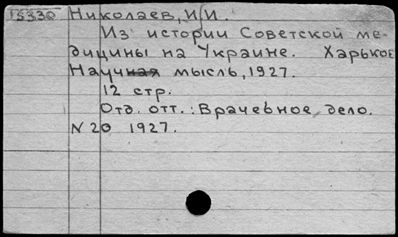 15330 Николаев, И.И.
Из истории Советской ме-
дицины на Украине. Харьков
Научная мысль, 1927.
12 стр.
Отд. отт.: Врачебное дело.
N 20 1927.